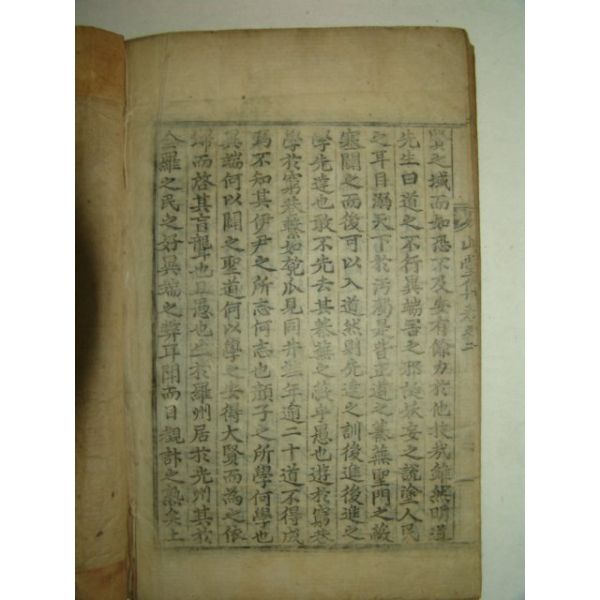 賢之域而如恐不及安有餘力於他技哉雖然明道
先生曰道之不行異端害之邪誕妖妄之說塗人民
之耳目溺天下於污濁是皆正道之蓁蕪聖門之蔽
塞闢之而後可以入道然則先達之訓後進後進之
學先達也敢不先去其蓁蕪之蔽乎愚也遊於窮巷
學於窮巷繫如匏瓜見同井
年逾二十道不得成
焉不知其伊尹之所志何志也顔子之所學何學也
異端何以闢之聖道何以學之安得大賢而爲之依
歸而啓其盲聾也且愚也生於羅州居於光州其於
全羅之民之好異端之弊耳聞而目觀計之熟矣上